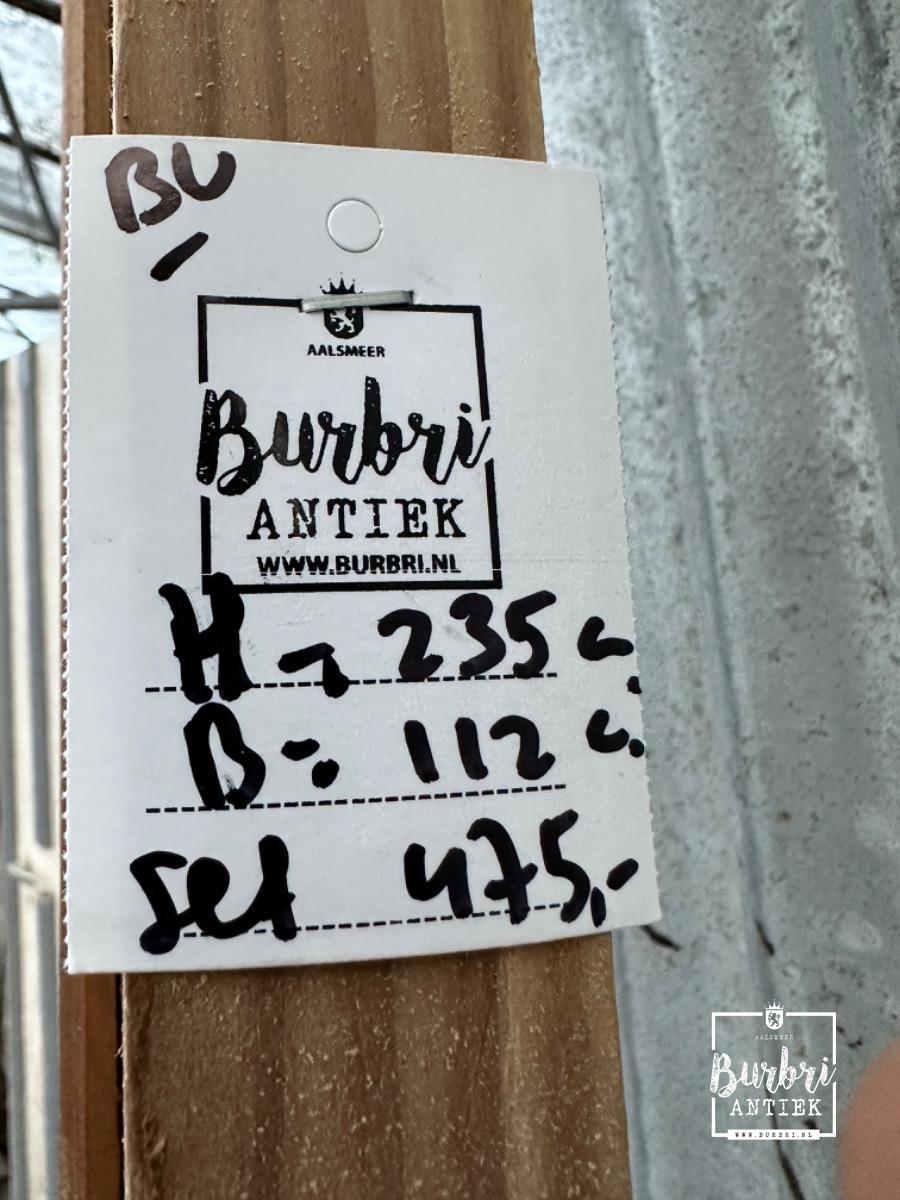 BU
-
AALSMEER
Burbri
ANTIEK
WWW.BURBRI.NL
H - 235 c.
B -: 112 c.
Set 475,-
AALSMEER
Burbri
ANTIEK
WWW.BURBRI.NL